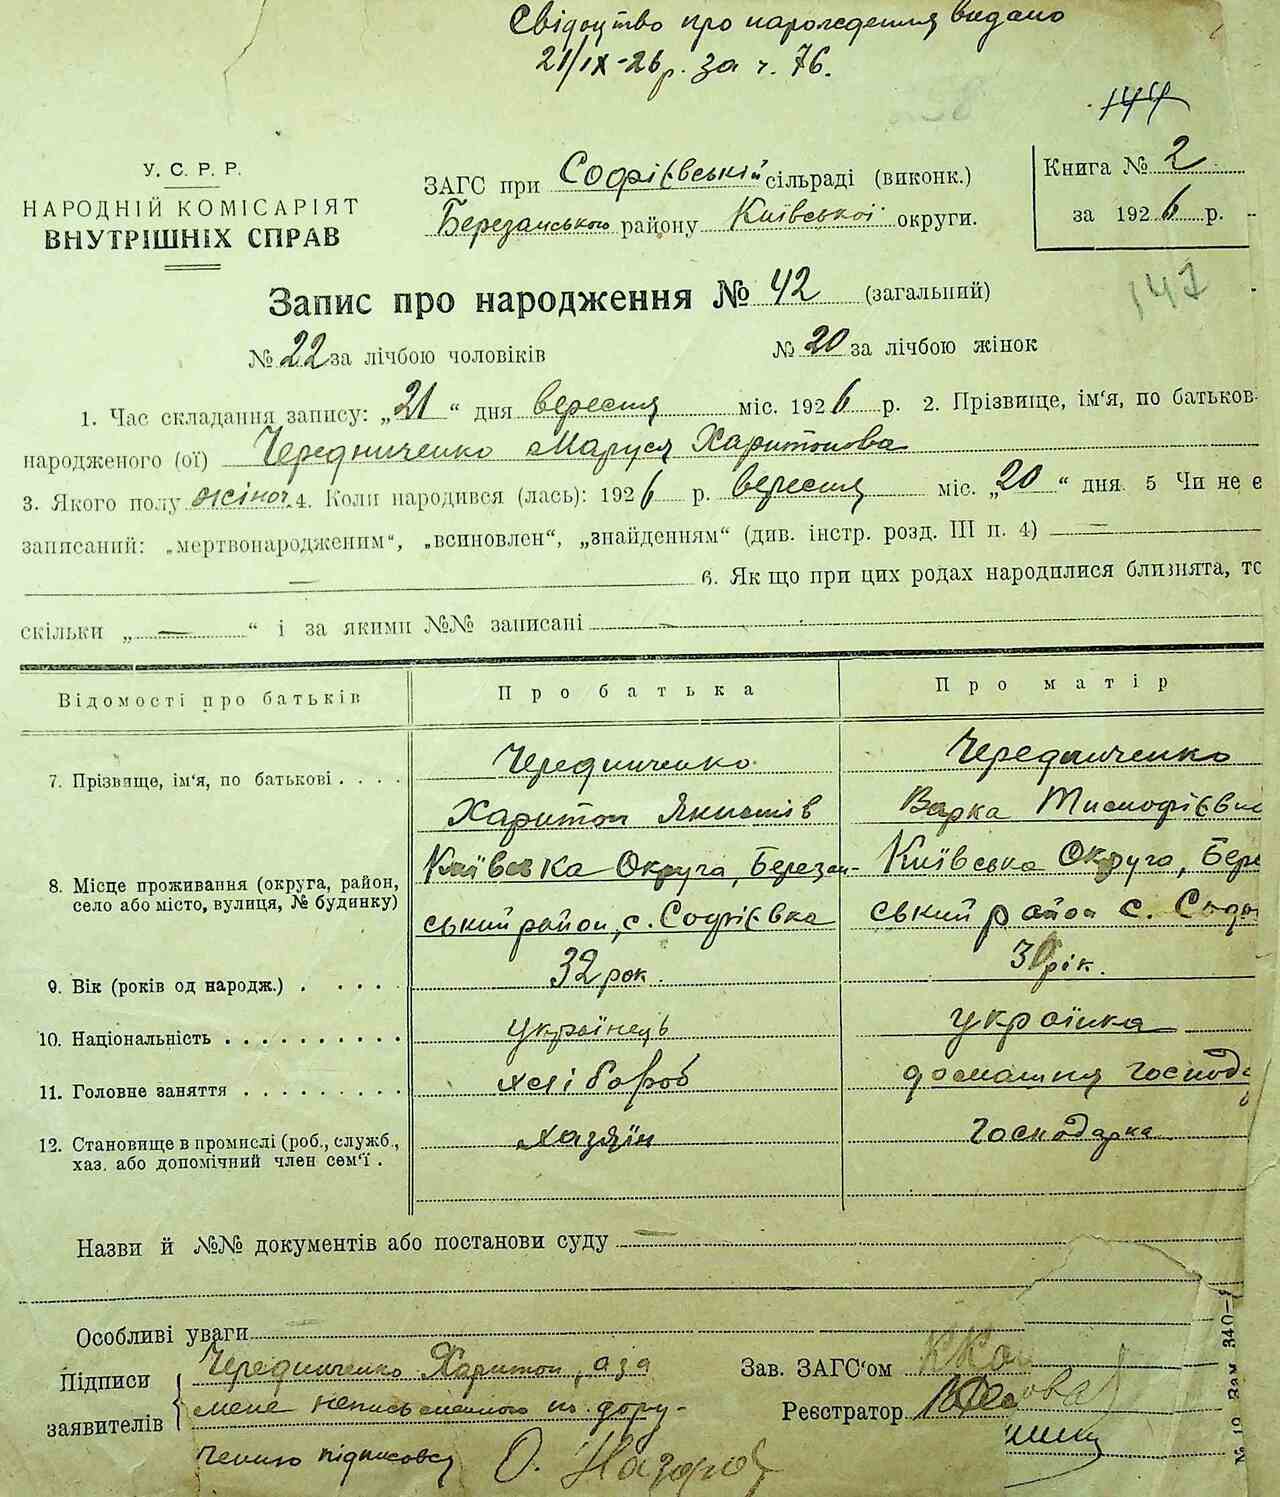 Свідоцтво про народження видано
21/IX-26 р. за ч. 76.
144
У. С. Р. Р.
НАРОДНІЙ КОМІСАРІЯТ
ВНУТРІШНІХ СПРАВ
ЗАГС при Софіївській сільраді (виконк.)
Березанського району Київської округи.
Книга № 2
за 1926 р.
Запис про народження № 42 (загальний)
147
№ 22 за лічбою чоловіків № 20 за лічбою жінок
1. Час складання запису: „21“ дня вересня міс. 1926 р. 2. Прізвище, ім'я, по батьков-
народженого (ої) Чередниченко Маруся Харитонова
3. Якого полу жіноч. 4. Коли народився (лась): 1926 р. вересня міс. „20“ дня. 5 Чи не є
записаний: „мертвонародженим“, „всиновлен“, „знайденням“ (див. інстр. розд. III п. 4) —
— 6. Як що при цих родах народилися близнята, то
скільки „—“ і за якими №№ записані —
Відомості про батьків Про батька Про матір
7. Прізвище, ім'я, по батькові . . . . Чередниченко Чередниченко
Харитон Варка
8. Місце проживання (округа, район, Київська Округа, Березан- Київська Округа, Бере
село або місто, вулиця, № будинку) ський район, с. Софієвка ський район с. Соф
9. Вік (років од народж.) . . . . . 32 рок. 30 рік.
10. Національність . . . . . . . . . . українець українка
11. Головне заняття . . . . . . . . . хлібороб домашня господ
12. Становище в промислі (роб., служб., хазяїн господарка
хаз. або допомічний член сем'ї .
Назви й №№ документів або постанови суду —
Особливі уваги —
Підписи
заявителів
Чередниченко Харитон, а за
мене неписьменного по дору-
ченню підписався О.
Зав. ЗАГС'ом
Реєстратор
№ 19 Зам 340—